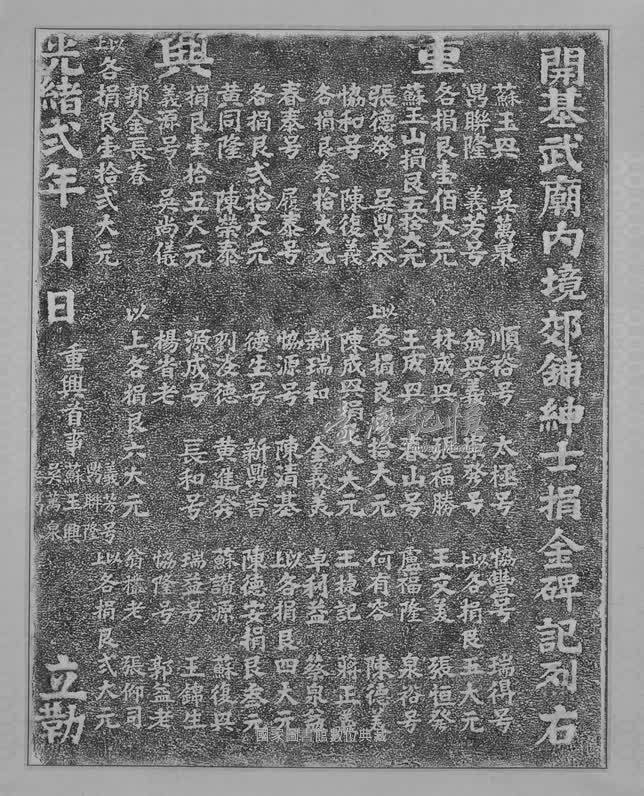 重興
開基武廟內境郊舖紳士捐金碑記列右
蘇玉興 吳萬泉
興聯隆 義芳号
各捐艮壹佰大元
蘇玉山捐艮五拾大元
張德發 吳鼎泰
協和号 陳復義
各捐艮叁拾大元
春泰号 履泰号
各捐艮弍拾大元
黃同隆 陳榮泰
捐艮壹拾五大元
義源号 吳尚儀
郭金長春
以上各捐艮壹拾弍大元
順裕号 太極号
翁興義 發号
林成興 張福勝
王成興 山号
以上各捐艮拾大元
陳成興捐艮八大元
新瑞和 金義美
協源号 陳清基
德生号 新鼎香
劉 德 黃進發
源成号 長和号
楊省老
以上各捐艮六大元
協豐号 瑞得号
以上各捐艮五大元
王文美 張恒發
盧福隆 泉裕号
何有容 陳德義
王捷記 蔣正
卓利益 蔡泉
以上各捐艮四大元
陳德安捐艮叁元
蘇讚源 蘇復興
瑞益号 王錦生
協隆号 郭孟老
翁 老 張仰司
以上各捐艮弍大元
光緒弍年 月 日
重興首事
義芳号
興聯隆
蘇玉興
吳萬泉
立勒
國家圖書館數位典藏